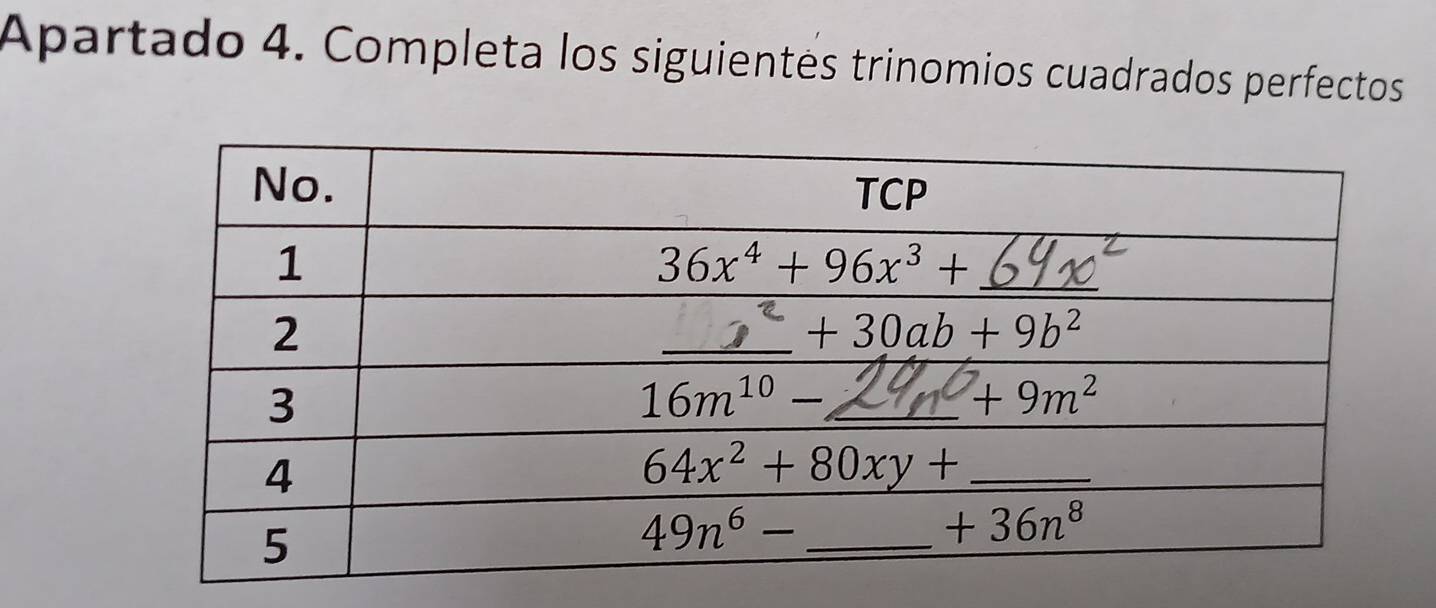 Apartado 4. Completa los siguientes trinomios cuadrados perfectos
No. TCP
1 36x⁴ + 96x³ + 64x²
2 ² + 30ab + 9b²
3 16m¹⁰ − + 9m²
4 64x² + 80xy + ____
5 49n⁶ − ____ + 36n⁸